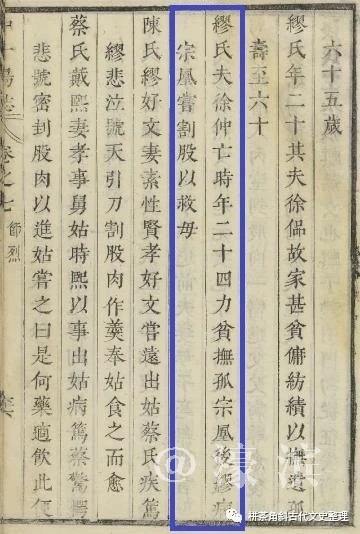 六十五歲
繆氏年二十其夫徐故家甚貧傭紡績以撫遺孤
壽至六十
繆氏夫徐仲亡時年二十四力貧撫孤宗凰後繆病
宗凰嘗割股以救毋
陳氏繆好文妻素性賢孝好文嘗遠出姑蔡氏疾篤
繆悲泣號天引刀割股肉作羹奉姑食之而愈
蔡氏戴熙妻孝事舅姑時熙以事出姑病篤蔡驚愕
悲號密刲股肉以進姑嘗之曰是何藥適飲此便
十場志 卷之七 節烈
栟茶角斜古代文史整理